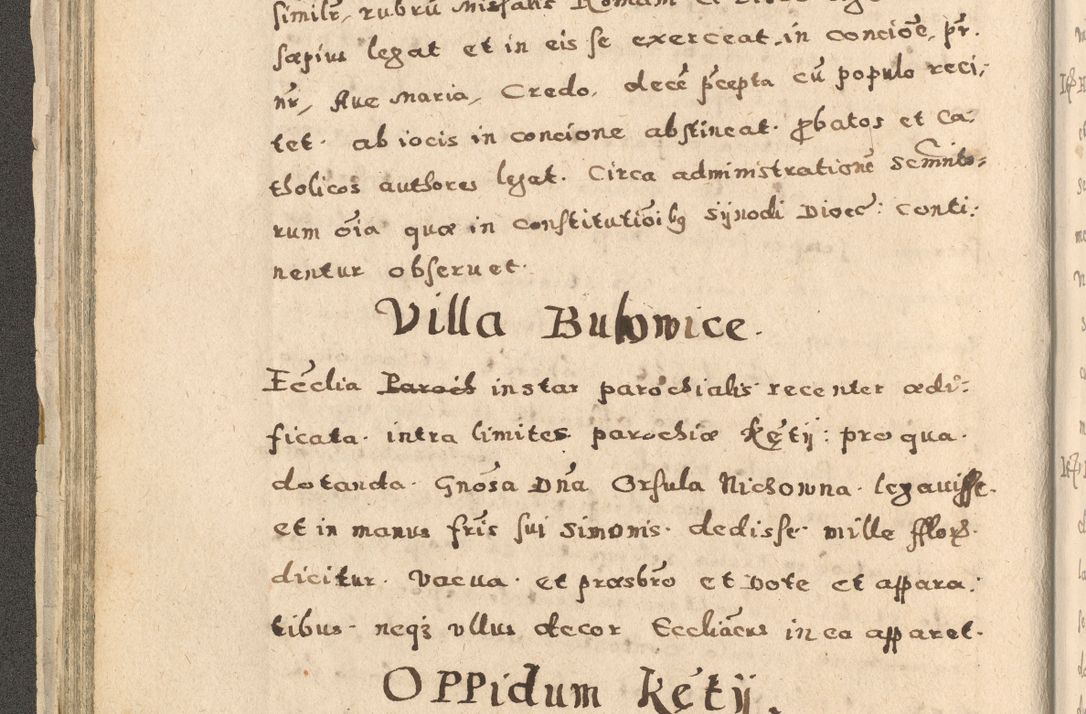 similr, rubrū Missalis Romani
sæpius legat et in eis se exerceat, in concioē, pr̄.
nr̄, Aue Maria, Credo, decē p̄cepta cū populo reci,
tet. ab iocis in concione abstineat. ꝓbatos et Ca-
tholicos authores legat. Circa administrationē Scm̄nto=
rum oīa quæ in Constitutiōibꝫ Synodi Dioec: conti:
nentur obseruet.
Villa Bulowice.
Ecclia Paroch instar parochialis recenter ædi:
ficata. intra limites parochiæ Kętÿ: pro qua.
dotanda. Gnōsa Dn̄a Orsula Nichowna. legauisse.
et in manus fr̄is sui Simonis. dedisse. mille fflorꝫ.
dicitur. Vacua. et præsbr̄o et Dote et appara:
tibus. neqꝫ vllus decor Eccliācus in ea apparet.
Oppidum Kętÿ.